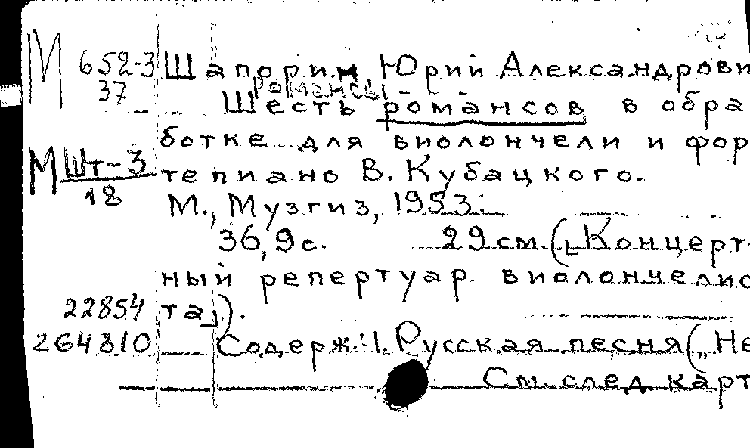 М 652-3 Шапорин Юрий Александрови
37 романсы
Шесть романсов в обра
ботке для виолончели и фор
М Шт-3 тепиано В. Кубацкого.
18 М., Музгиз, 1953.
36, 9 с. 29 см. („Концерт-
ный репертуар виолончелис
22854 та").
264310 Содерж.: 1. Русская песня („Не
См. след карт